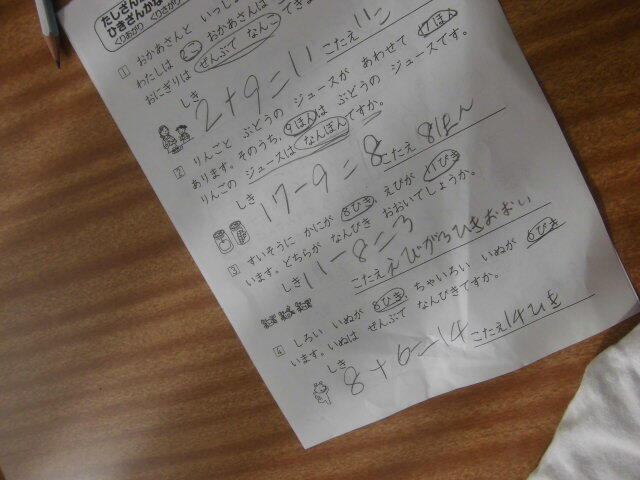 たしざん
ひきざん
くりあがり くりさがり
1 おかあさんと いっし
わたしは 2こ おかあさんは
おにぎりは ぜんぶで なんこ でき
しき 2+9=11 こたえ 11こ
2 りんごと ぶどうの ジュースが あわせて 17ほん
あります。そのうち、9ほんは ぶどうの ジュースです。
りんごの ジュースは なんぼんですか。
しき 17-9=8 こたえ 8ほん
3 すいそうに かにが 8ひき、えびが 11ぴき
います。どちらが なんびき おおいでしょうか。
しき 11-8=3
こたえ えびが3びきおおい
4 しろい いぬが 8ひき、ちゃいろい いぬが 6ぴき
います。いぬは ぜんぶで なんびきですか。
しき 8+6=14 こたえ 14ひき